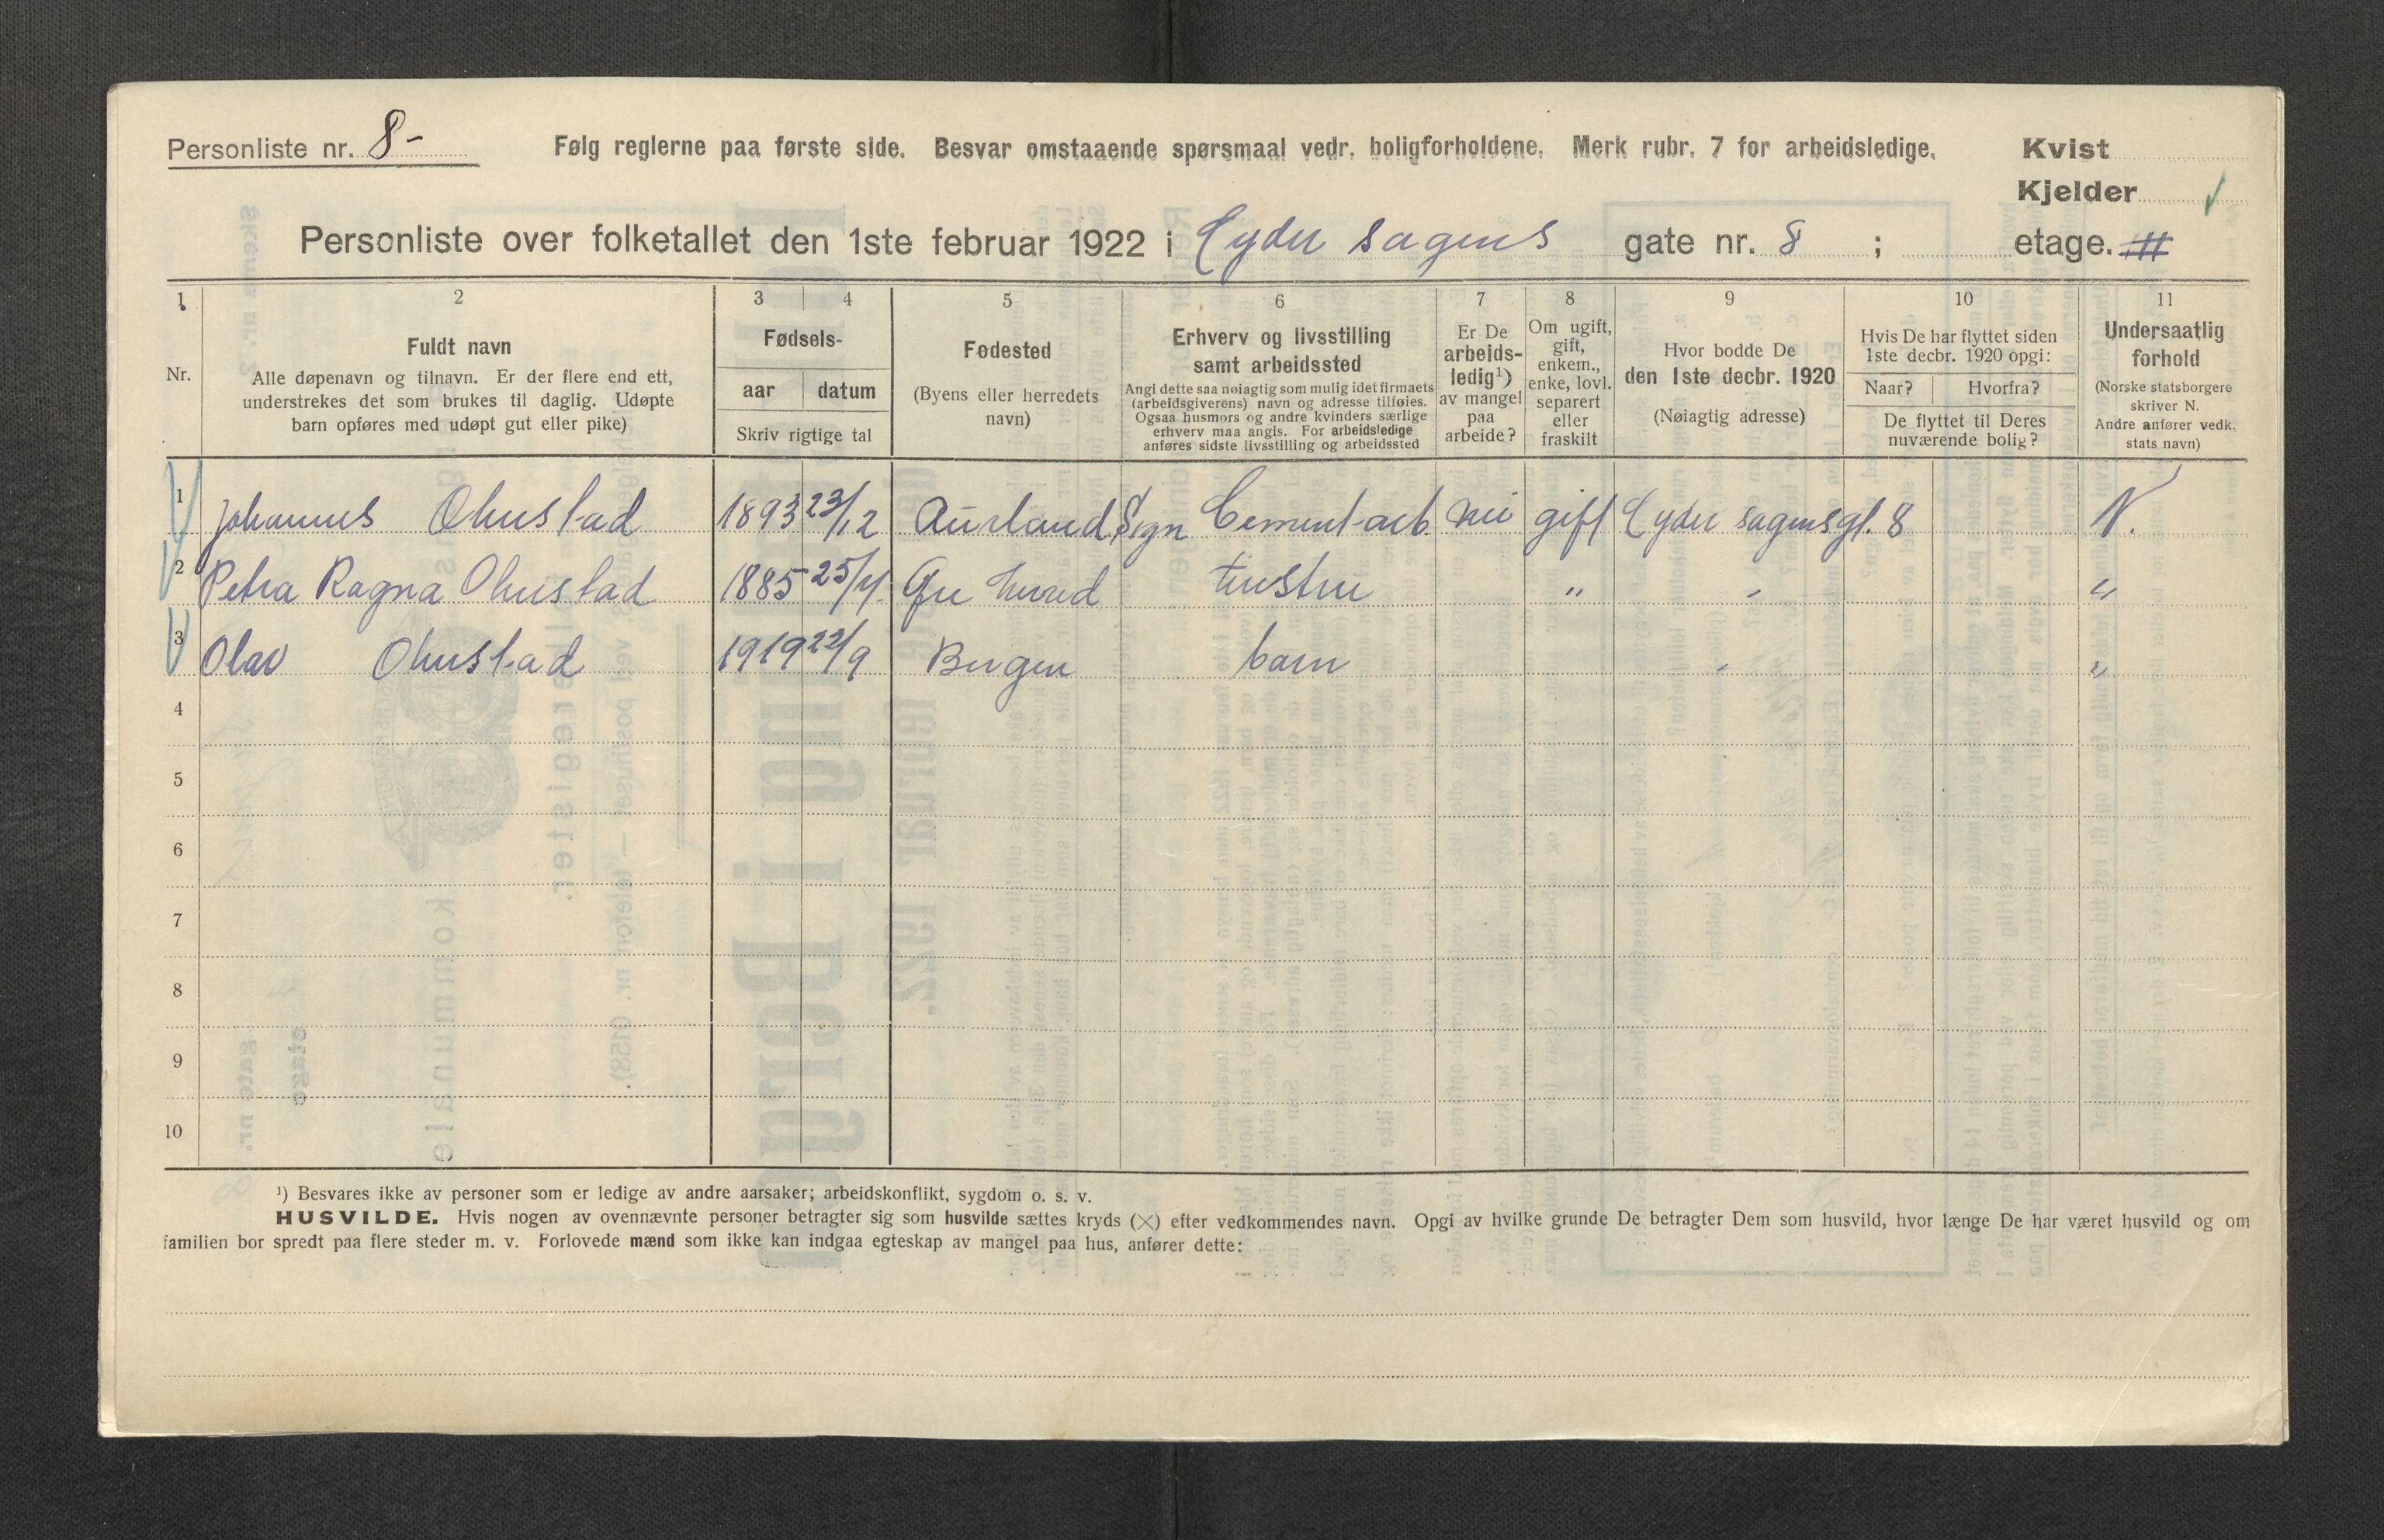 Personliste nr. 8-
Følg reglerne paa første side. Besvar omstaaende spørsmaal vedr. boligforholdene. Merk rubr. 7 for arbeidsledige.
Kvist
Kjelder
Personliste over folketallet den 1ste februar 1922 i Lyder sagens gate nr. 8 ; etage.
1 2 3 4 5 6 7 8 9 10 11
Nr.
Fuldt navn
Alle døpenavn og tilnavn. Er der flere end ett,
understrekes det som brukes til daglig. Udøpte
barn opføres med udøpt gut eller pike)
Fødsels-
aar datum
Skriv rigtige tal
Fødested
(Byens eller herredets
navn)
Erhverv og livsstilling
samt arbeidssted
Angi dette saa nøiagtig som mulig idet firmaets
(arbeidsgiverens) navn og adresse tilføies.
Ogsaa husmors og andre kvinders særlige
erhverv maa angis. For arbeidsledige
anføres sidste livsstilling og arbeidssted
Er De
arbeids-
ledig¹)
av mangel
paa
arbeide?
Om ugift,
gift,
enkem.,
enke, lovl.
separert
eller
fraskilt
Hvor bodde De
den 1ste decbr. 1920
(Nøiagtig adresse)
Hvis De har flyttet siden
1ste decbr. 1920 opgi:
Naar? Hvorfra?
De flyttet til Deres
nuværende bolig?
Undersaatlig
forhold
(Norske statsborgere
skriver N.
Andre anfører vedk.
stats navn)
1 Johannes Ohnstad 1893 23/12 Aurland Sogn Cement-arb. nei gift Lyder sagensgt. 8 N.
2 Petra Ragna Ohnstad 1885 25/4. hustru " " "
3 Olav Ohnstad 1919 22/9 Bergen barn " "
4
5
6
7
8
9
10
¹) Besvares ikke av personer som er ledige av andre aarsaker; arbeidskonflikt, sygdom o. s. v.
HUSVILDE. Hvis nogen av ovennævnte personer betragter sig som husvilde sættes kryds (×) efter vedkommendes navn. Opgi av hvilke grunde De betragter Dem som husvild, hvor længe De har været husvild og om
familien bor spredt paa flere steder m. v. Forlovede mænd som ikke kan indgaa egteskap av mangel paa hus, anfører dette: